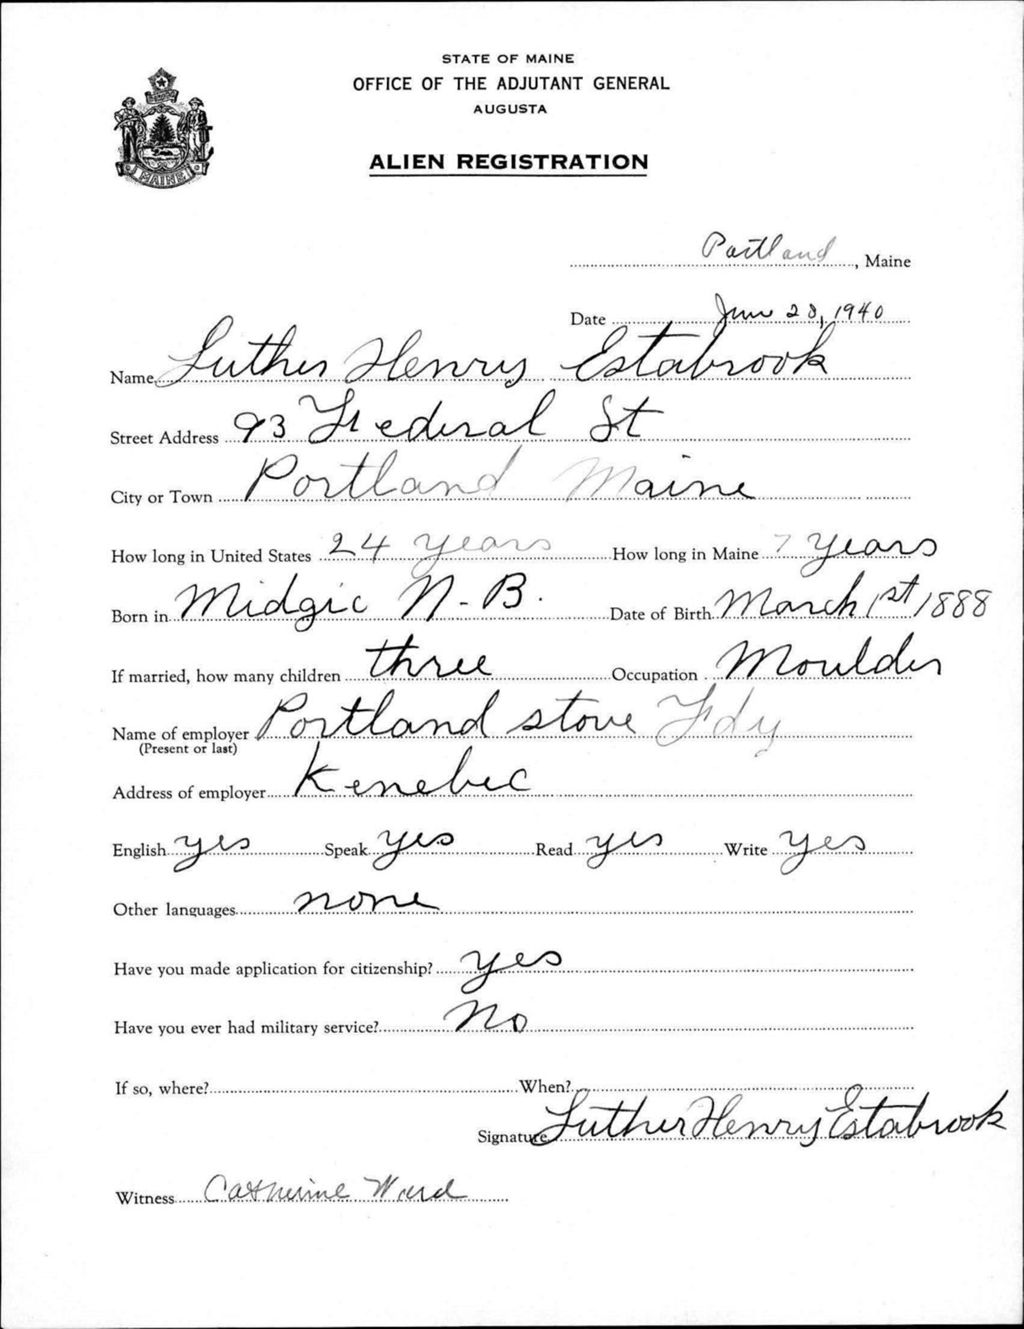 STATE OF MAINE
OFFICE OF THE ADJUTANT GENERAL
AUGUSTA
ALIEN REGISTRATION
MAINE
Portland, Maine
Date June 28, 1940
Name Luther Henry Estabrook
Street Address 93 Federal St
City or Town Portland Maine
How long in United States 24 years How long in Maine 7 years
Born in Midgic N-B. Date of Birth March 1st 1888
If married, how many children three Occupation Moulder
Name of employer Portland stove Fdy
(Present or last)
Address of employer Kenebec
English yes Speak yes Read yes Write yes
Other languages none
Have you made application for citizenship? yes
Have you ever had military service? No
If so, where? When?
Signature Luther Henry Estabrook
Witness Catherine Ward